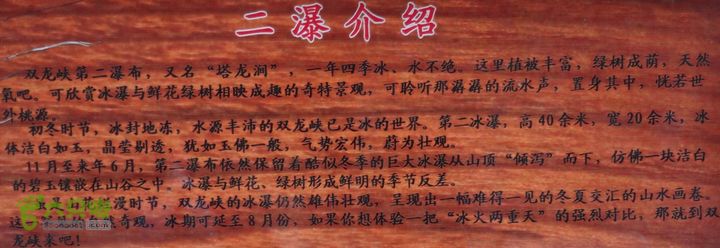 二瀑介绍
双龙峡第二瀑布，又名“塔龙涧”，一年四季冰、水不绝。这里植被丰富，绿树成荫，天然
氧吧。可欣赏冰瀑与鲜花绿树相映成趣的奇特景观，可聆听那潺潺的流水声，置身其中，恍若世
外桃源。
初冬时节，冰封地冻，水源丰沛的双龙峡已是冰的世界。第二冰瀑，高40余米，宽20余米，冰
体洁白如玉，晶莹剔透，犹如玉佛一般，气势宏伟，蔚为壮观。
11月至来年6月，第二瀑布依然保留着酷似冬季的巨大冰瀑从山顶“倾泻”而下，仿佛一块洁白
的碧玉镶嵌在山谷之中。冰瀑与鲜花、绿树形成鲜明的季节反差。
山花烂漫时节，双龙峡的冰瀑仍然雄伟壮观，呈现出一幅难得一见的冬夏交汇的山水画卷。
这奇观，冰期可延至8月份，如果你想体验一把“冰火两重天”的强烈对比，那就到双
龙峡来吧！